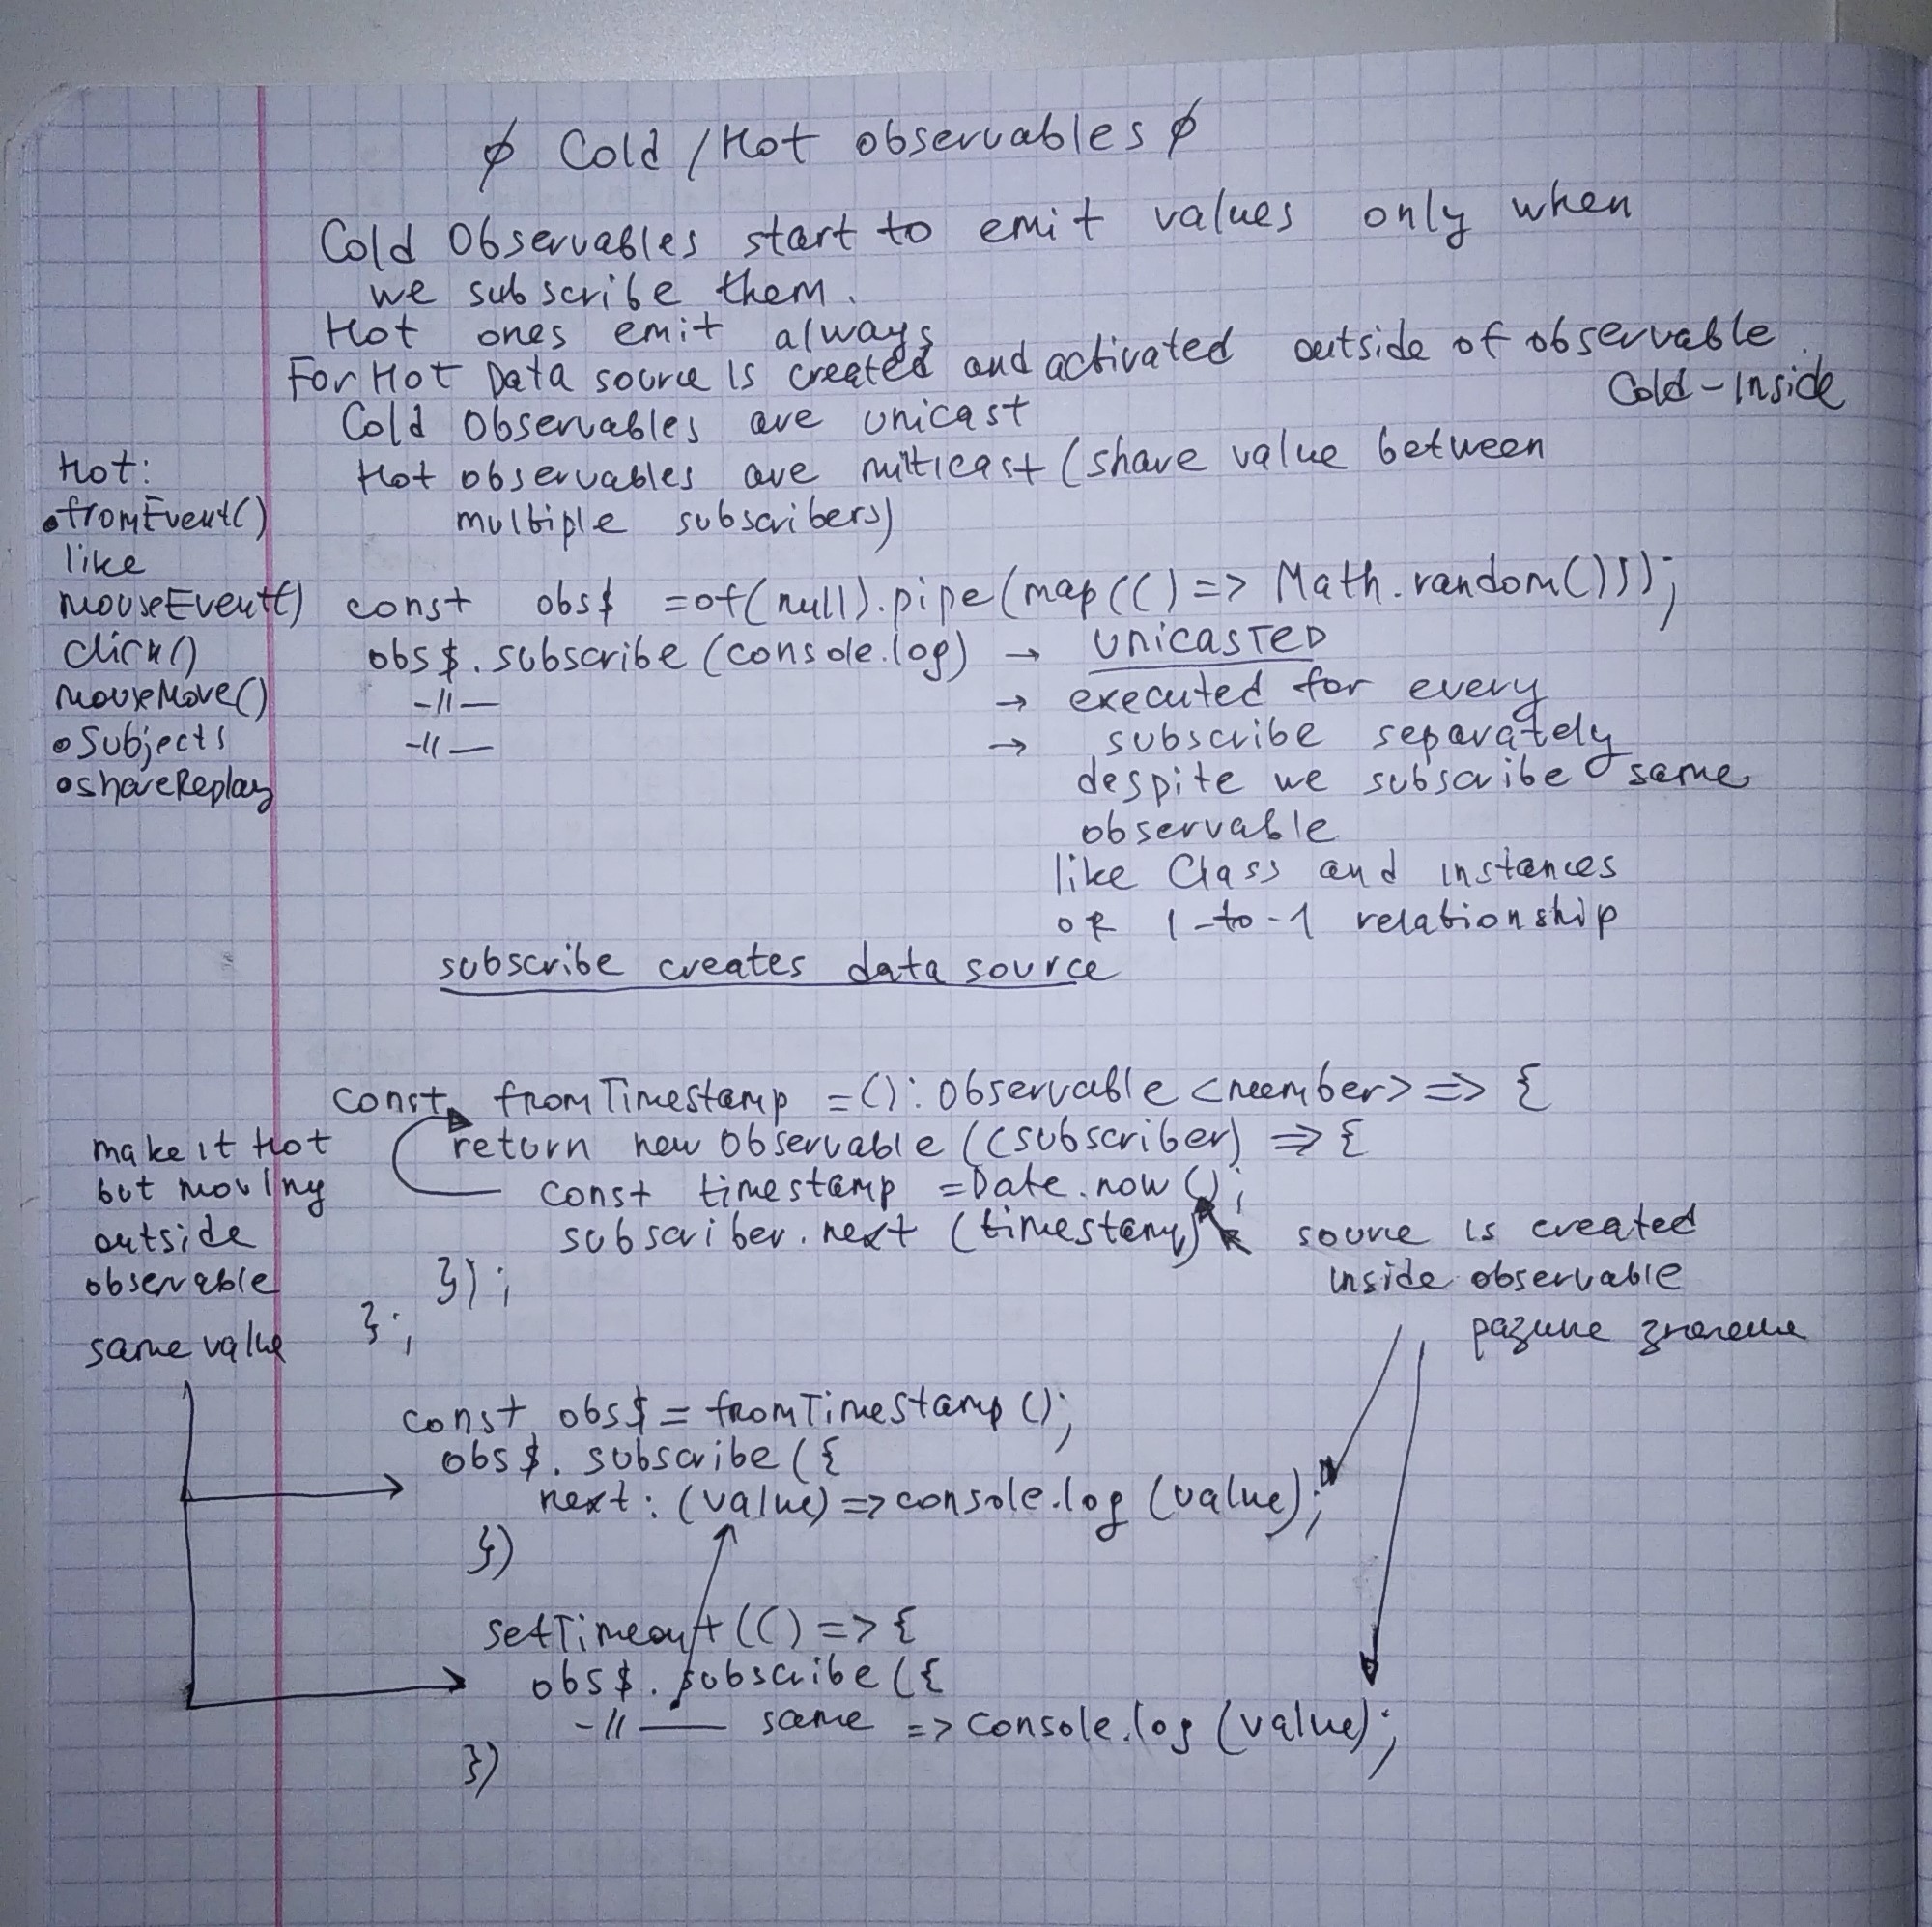 ∅ Cold / Hot observables ∅
Cold Observables start to emit values only when
we subscribe them.
Hot ones emit always
For Hot Data source is created and activated outside of observable.
Cold - Inside
Cold Observables are unicast
Hot observables are multicast (share value between
multiple subscribers)
Hot:
• fromEvent()
like
mouseEvent()
click()
mouseMove()
• Subjects
• shareReplay
const obs$ = of(null).pipe(map(() => Math.random()));
obs$.subscribe(console.log) → UNICASTED
-//- → executed for every
-//- → subscribe separately
despite we subscribe same
observable
like Class and instances
or 1-to-1 relationship
subscribe creates data source
const fromTimestamp = (): Observable<number> => {
return new Observable((subscriber) => {
const timestamp = Date.now();
subscriber.next(timestamp)
});
};
make it hot
but moving
outside
observable
same value
source is created
inside observable
разные значения
const obs$ = fromTimestamp();
obs$.subscribe({
next: (value) => console.log(value);
})
setTimeout(() => {
obs$.subscribe({
-//- same => console.log(value);
})